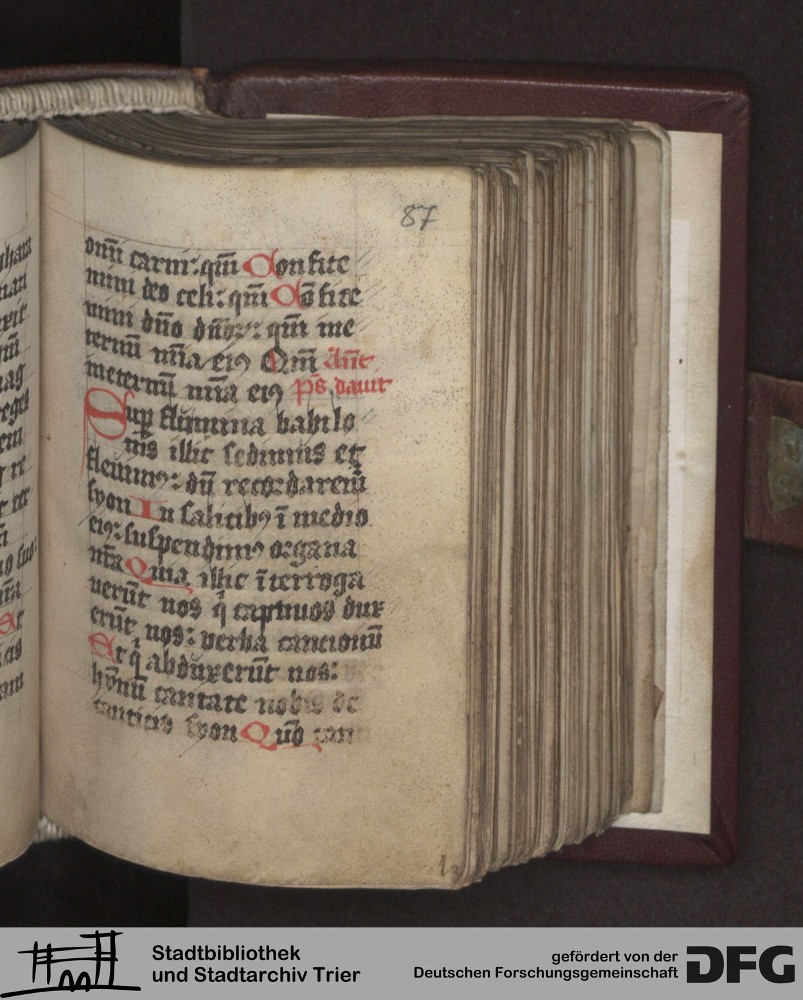 87
om̄i carni: qm̄ Confite
mini deo celi: qm̄ Cōfite
mini dn̄o dn̄oꝝ: qm̄ in e
ternū mīa eiꝰ Qm̄ Ant̄
in eternū mīa eiꝰ ps̄ dauit
Suꝑ flumina babilo
nis illic sedimus et
fleuimꝰ: dū recordarem̄
syon In salicibꝰ ī medio
eiꝰ: suspendimꝰ organa
nr̄a Quia illic īterroga
uerūt nos q̄ captiuos dux
erūt nos: verba cancionū
Et q̄ abduxerūt nos:
hȳnū cantate nobis de
canticis syon Quō can
Stadtbibliothek
und Stadtarchiv Trier
gefördert von der
Deutschen Forschungsgemeinschaft
DFG